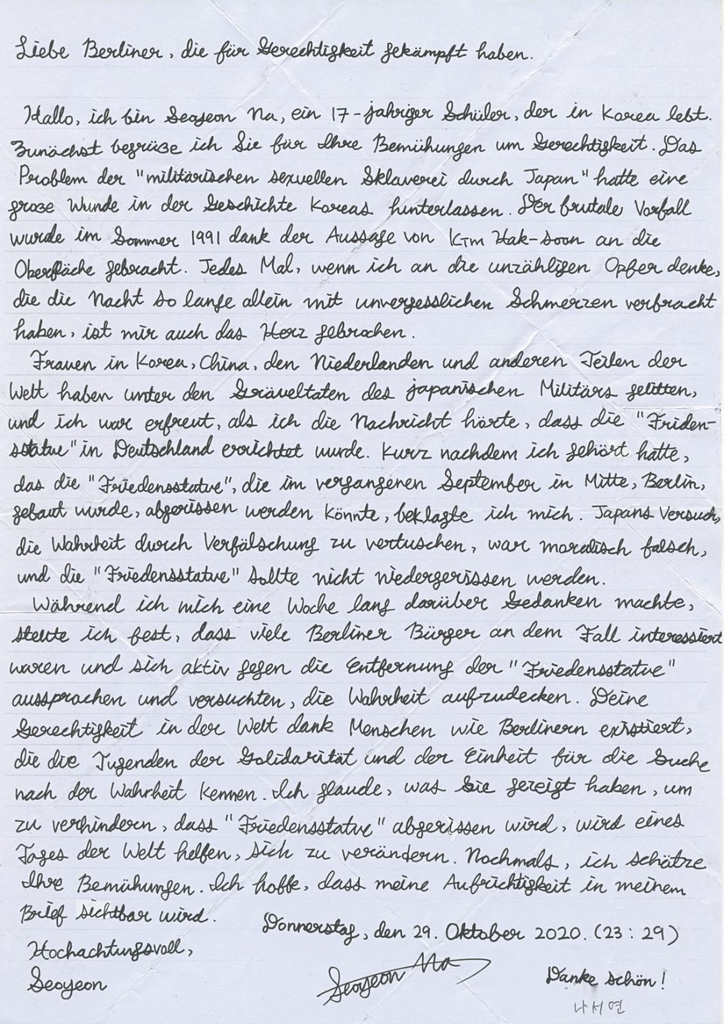 Liebe Berliner, die für Gerechtigkeit gekämpft haben.
Hallo, ich bin Seoyeon Na, ein 17-jahriger Schüler, der in Korea lebt.
Zunächst begrüße ich Sie für Ihre Bemühungen um Gerechtigkeit. Das
Problem der "militärischen sexuellen Sklaverei durch Japan" hatte eine
große Wunde in der Geschichte Koreas hinterlassen. Der brutale Vorfall
wurde im Sommer 1991 dank der Aussage von Kim Hak-soon an die
Oberfläche gebracht. Jedes Mal, wenn ich an die unzähligen Opfer denke,
die die Nacht so lange allein mit unvergesslichen Schmerzen verbracht
haben, ist mir auch das Herz gebrochen.
Frauen in Korea, China, den Niederlanden und anderen Teilen der
Welt haben unter den Gräueltaten des japanischen Militärs gelitten,
und ich war erfreut, als ich die Nachricht hörte, dass die "Friden-
sstatue" in Deutschland errichtet wurde. Kurz nachdem ich gehört hatte,
das die "Friedensstatue", die im vergangenen September in Mitte, Berlin,
gebaut wurde, abgerissen werden könnte, beklagte ich mich. Japans Versuch,
die Wahrheit durch Verfälschung zu vertuschen, war moralisch falsch,
und die "Friedensstatue" sollte nicht niedergerissen werden.
Während ich mich eine Woche lang darüber Gedanken machte,
stellte ich fest, dass viele Berliner Bürger an dem Fall interessiert
waren und sich aktiv gegen die Entfernung der "Friedensstatue"
aussprachen und versuchten, die Wahrheit aufzudecken. Deine
Gerechtigkeit in der Welt dank Menschen wie Berlinern existiert,
die die Tugenden der Solidarität und der Einheit für die Suche
nach der Wahrheit kennen. Ich glaude, was Sie gezeigt haben, um
zu verhindern, dass "Friedensstatue" abgerissen wird, wird eines
Tages der Welt helfen, sich zu verändern. Nochmals, ich schätze
Ihre Bemühungen. Ich hoffe, dass meine Aufrichtigkeit in meinem
Brief sichtbar wird.
Donnerstag, den 29. Oktober 2020. (23:29)
Hochachtungsvoll,
Seoyeon
Seoyeon Na
Danke schön!
나서연